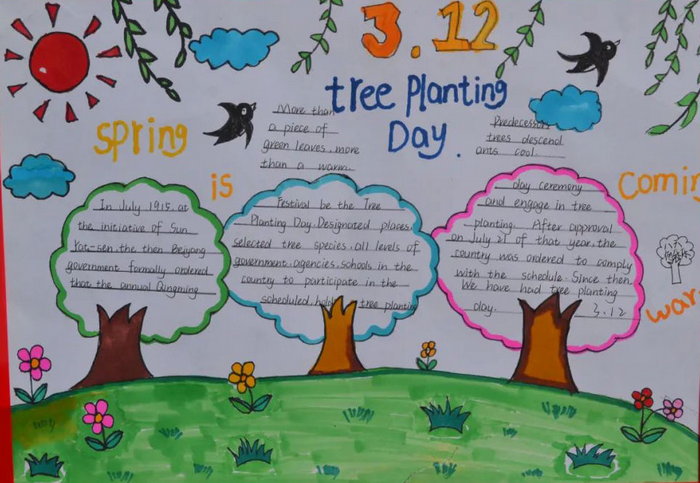 3.12
tree Planting
Day.
spring
is
Comin
war
More than
a piece of
green leaves, more
than a warm.
Predecessors
trees descend
ants cool.
In July 1915. at
the initiative of Sun
Yat-sen, the then Beiyang
government formally ordered
that the annual Qingming
Festival be the Tree
Planting Day. Designated places,
selected tree species, all levels of
government, agencies, schools in the
country to participate in the
scheduled, hold tree planting
day ceremony
and engage in tree
planting. After approval
on July 21 of that year, the
country was ordered to comply
with the schedule. Since then,
We have had tree planting
day. 3.12